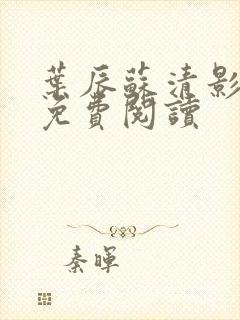 葉辰蘇清影
免費閱讀
秦暉